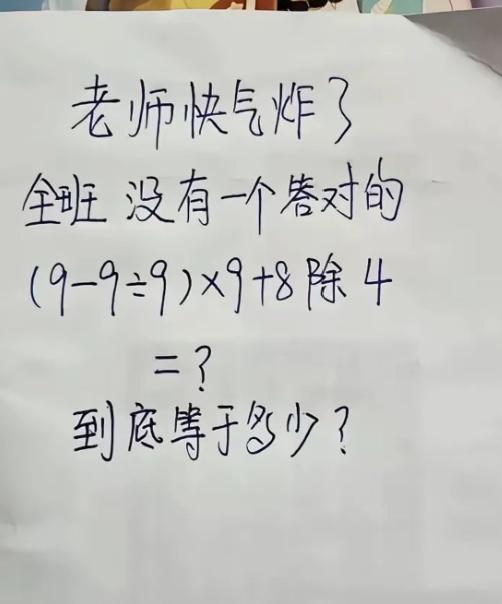 老师快气炸了
全班没有一个答对的
(9-9÷9)×9+8除4
=?
到底等于多少?